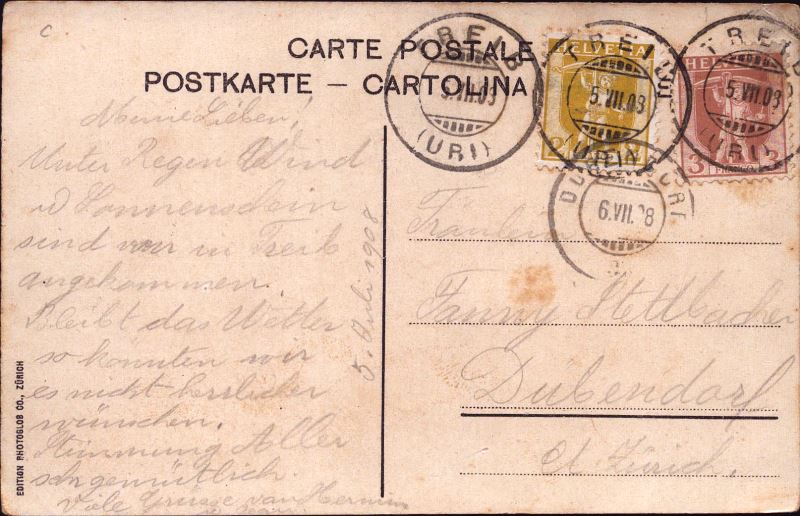 c
CARTE POSTALE
POSTKARTE — CARTOLINA
TREIB
5.VII.08
(URI)
TREIB
5.VII.08
(URI)
TREIB
5.VII.08
(URI)
HELVETIA
2
HELVETIA
3 3
DÜBENDORF
6.VII.08
Meine Lieben!
Unter Regen Wind
u Sonnenschein
sind wir in Treib
angekommen.
Bleibt das Wetter
so könnten wir
es nicht herrlicher
wünschen.
Stimmung Aller
sehr gemütlich.
Viele Grüsse von Hermin
5. Juli 1908
Fräulein
Fanny Stettbacher
Dübendorf
Ct Zürich.
EDITION PHOTOGLOB CO., ZÜRICH